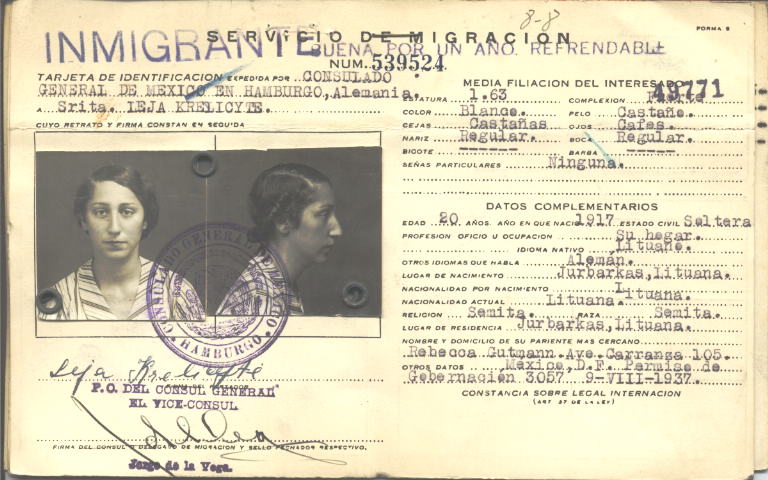 8-8
FORMA 5
SERVICIO DE MIGRACION
INMIGRANTE
BUENA POR UN AÑO. REFRENDABLE
NUM. 539524
TARJETA DE IDENTIFICACION EXPEDIDA POR CONSULADO
GENERAL DE MEXICO EN HAMBURGO, Alemania.
A Srita. LEJA KRELICYTE.
CUYO RETRATO Y FIRMA CONSTAN EN SEGUIDA
CONSULADO GENERAL DE MEXICO
HAMBURGO
Leja Krelicyte
P.O. DEL CONSUL GENERAL
EL VICE-CONSUL
FIRMA DEL CONSUL O DELEGADO DE MIGRACION Y SELLO FECHADOR RESPECTIVO.
Jorge de la Vega.
MEDIA FILIACION DEL INTERESADO
49771
ESTATURA 1.63 COMPLEXION Fuerte
COLOR Blanco. PELO Castaño.
CEJAS Castañas OJOS Cafes.
NARIZ Regular. BOCA Regular.
BIGOTE ------ BARBA ------
SEÑAS PARTICULARES Ninguna.
DATOS COMPLEMENTARIOS
EDAD 20 AÑOS. AÑO EN QUE NACIO 1917 ESTADO CIVIL Soltera
PROFESION OFICIO U OCUPACION Su hogar.
IDIOMA NATIVO Lituano.
OTROS IDIOMAS QUE HABLA Alemán.
LUGAR DE NACIMIENTO Jurbarkas, Lituana.
NACIONALIDAD POR NACIMIENTO Lituana.
NACIONALIDAD ACTUAL Lituana.
RELIGION Semita. RAZA Semita.
LUGAR DE RESIDENCIA Jurbarkas, Lituana.
NOMBRE Y DOMICILIO DE SU PARIENTE MAS CERCANO
Rebecca Gutmann. Ave. Carranza 105.
OTROS DATOS México, D.F. Permiso de
Gobernación 3057 9-VIII-1937.
CONSTANCIA SOBRE LEGAL INTERNACION
(ART 57 DE LA LEY)